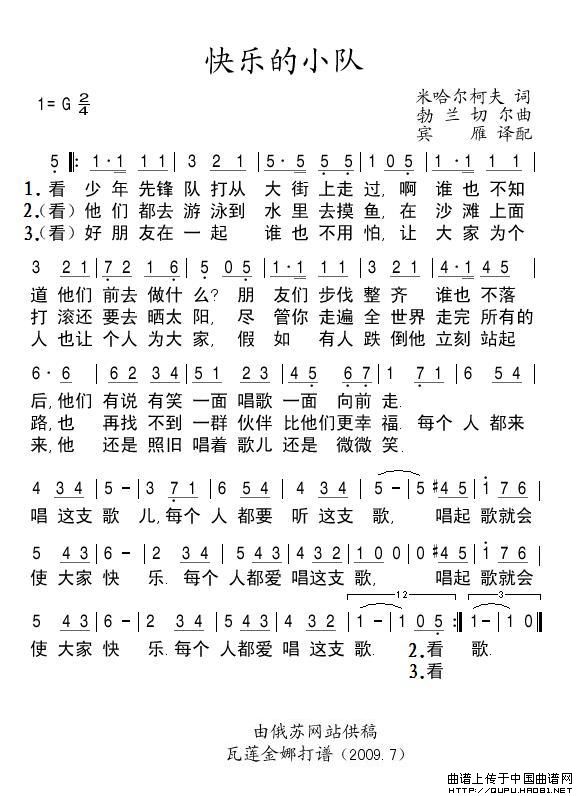 快乐的小队
1=G 2/4
米哈尔柯夫 词
勃兰切尔曲
宾 雁 译配
5 |: 1·1 1 1 | 3 2 1 | 5· 5 5 5 | 1 0 5 | 1·1 1 1 |
1.看 少年先锋队打从 大街上走过,啊 谁也不知
2.(看)他们都去游泳到 水里去摸鱼,在 沙滩上面
3.(看)好朋友在一起 谁也不用怕,让 大家为个
3 2 1 | 7 2 1 6 | 5 0 5 | 1·1 1 1 | 3 2 1 | 4·1 4 5 |
道他们 前去做什么? 朋友们步伐整齐 谁也不落
打滚还要去晒太阳,尽管你走遍全世界走完所有的
人也让个人为大家,假如 有人跌倒他立刻站起
6· 6 | 3 4 3 4 | 5 1 2 3 | 4 5 6 7 | 1 - | 6 5 4 |
后,他们 有说有笑一面唱歌一面 向前走.
路,也 再找不到一群伙伴比他们更幸福.每个人都来
来,他 还是照旧唱着歌儿还是微微笑.
4 3 4 | 5 - | 3 7 1 | 6 5 4 | 4 3 4 | 5 - | 5 #4 5 | 1 7 6 |
唱这支歌儿,每个人都要 听这支歌, 唱起歌就会
5 4 3 | 6 - | 2 3 4 | 5 4 3 | 2 3 4 | 1 0 0 | 0 #4 5 | 1 7 6 |
使大家快 乐.每个人都爱唱这支歌, 唱起歌就会
5 4 3 | 6 - | 2 3 4 | 5 4 3 | 2 3 4 | 1 - | 1 0 5 :| 1 - | 1 0 |
12
3
使大家快 乐.每个人都爱唱这支歌. 2.看 歌.
3.看
由俄苏网站供稿
瓦莲金娜打谱(2009.7)
曲谱上传于中国曲谱网
HTTP://QUPU.HAO81.NET